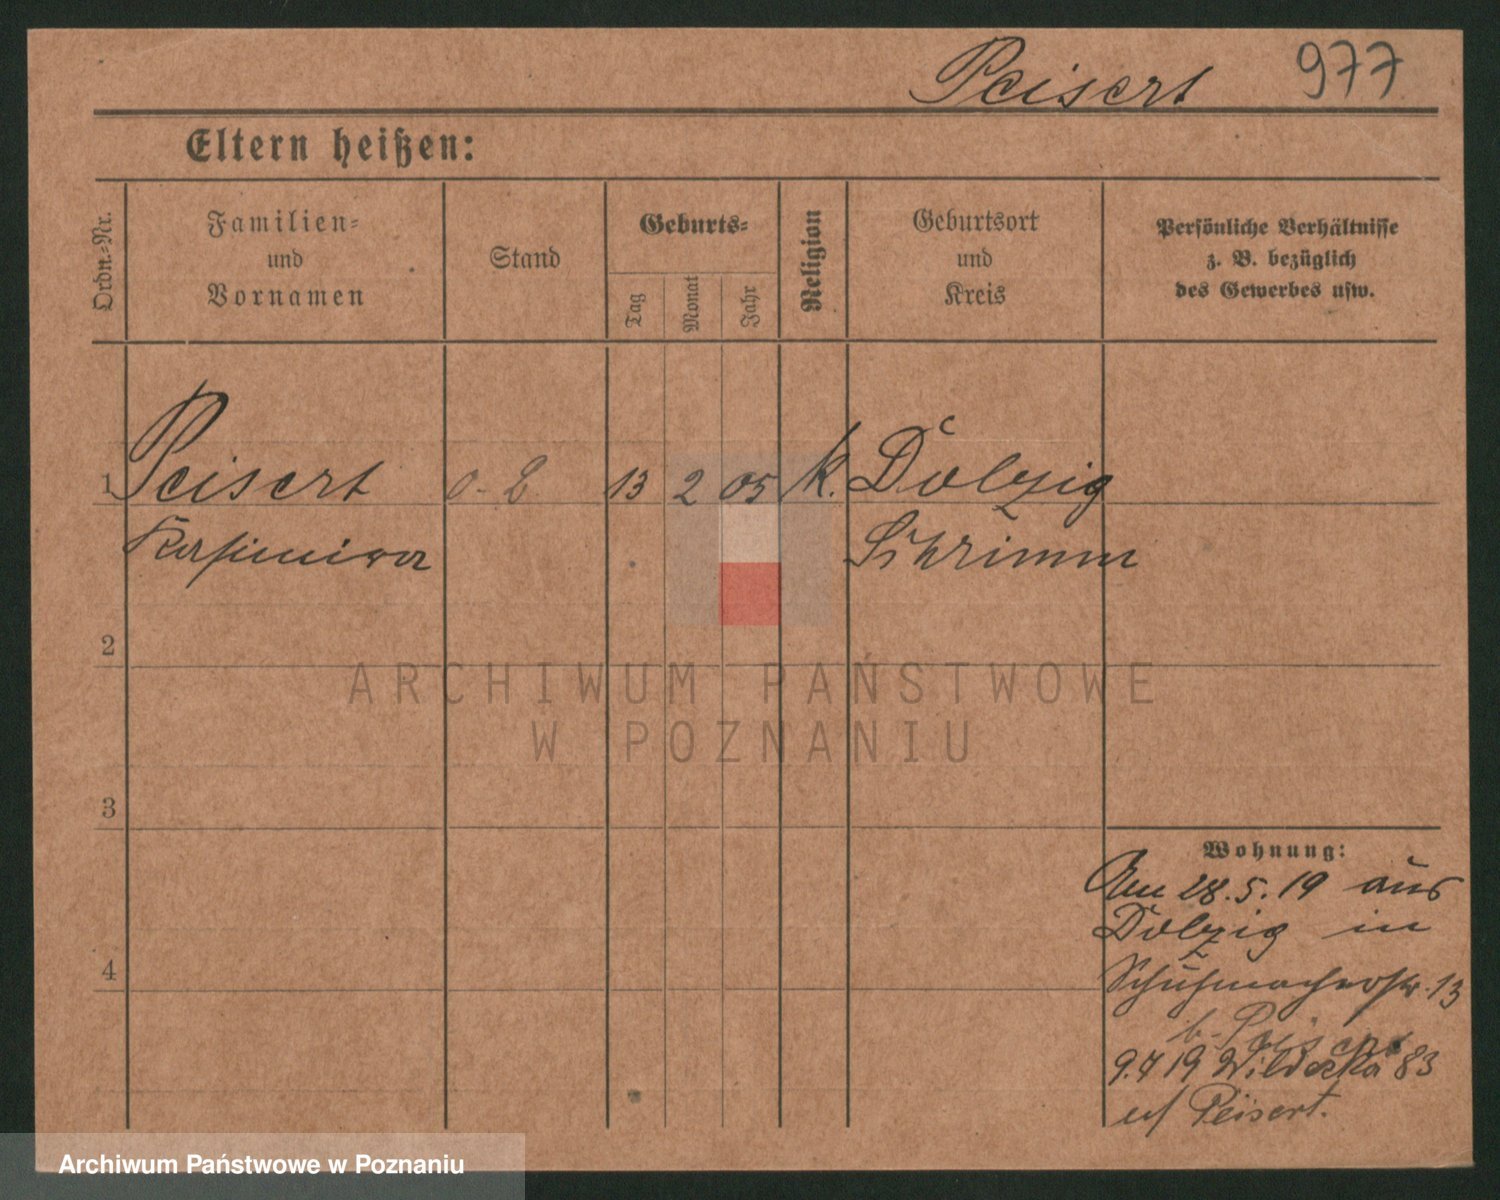 Peisert 977
Eltern heißen:
Ordn.-Nr.
Familien-
und
Vornamen
Stand
Geburts-
Tag
Monat
Jahr
Religion
Geburtsort
und
Kreis
Persönliche Verhältnisse
z. B. bezüglich
des Gewerbes usw.
1 Peisert 13 2 05 k. Dolzig
Kasimira Schrimm
2
3
4
Wohnung:
Am 28.5.19 aus
Dolzig in
Schuhmacherstr. 13
b. Peisert
9.7 19 Wildecka 83
Peisert.
ARCHIWUM PAŃSTWOWE
W POZNANIU
Archiwum Państwowe w Poznaniu